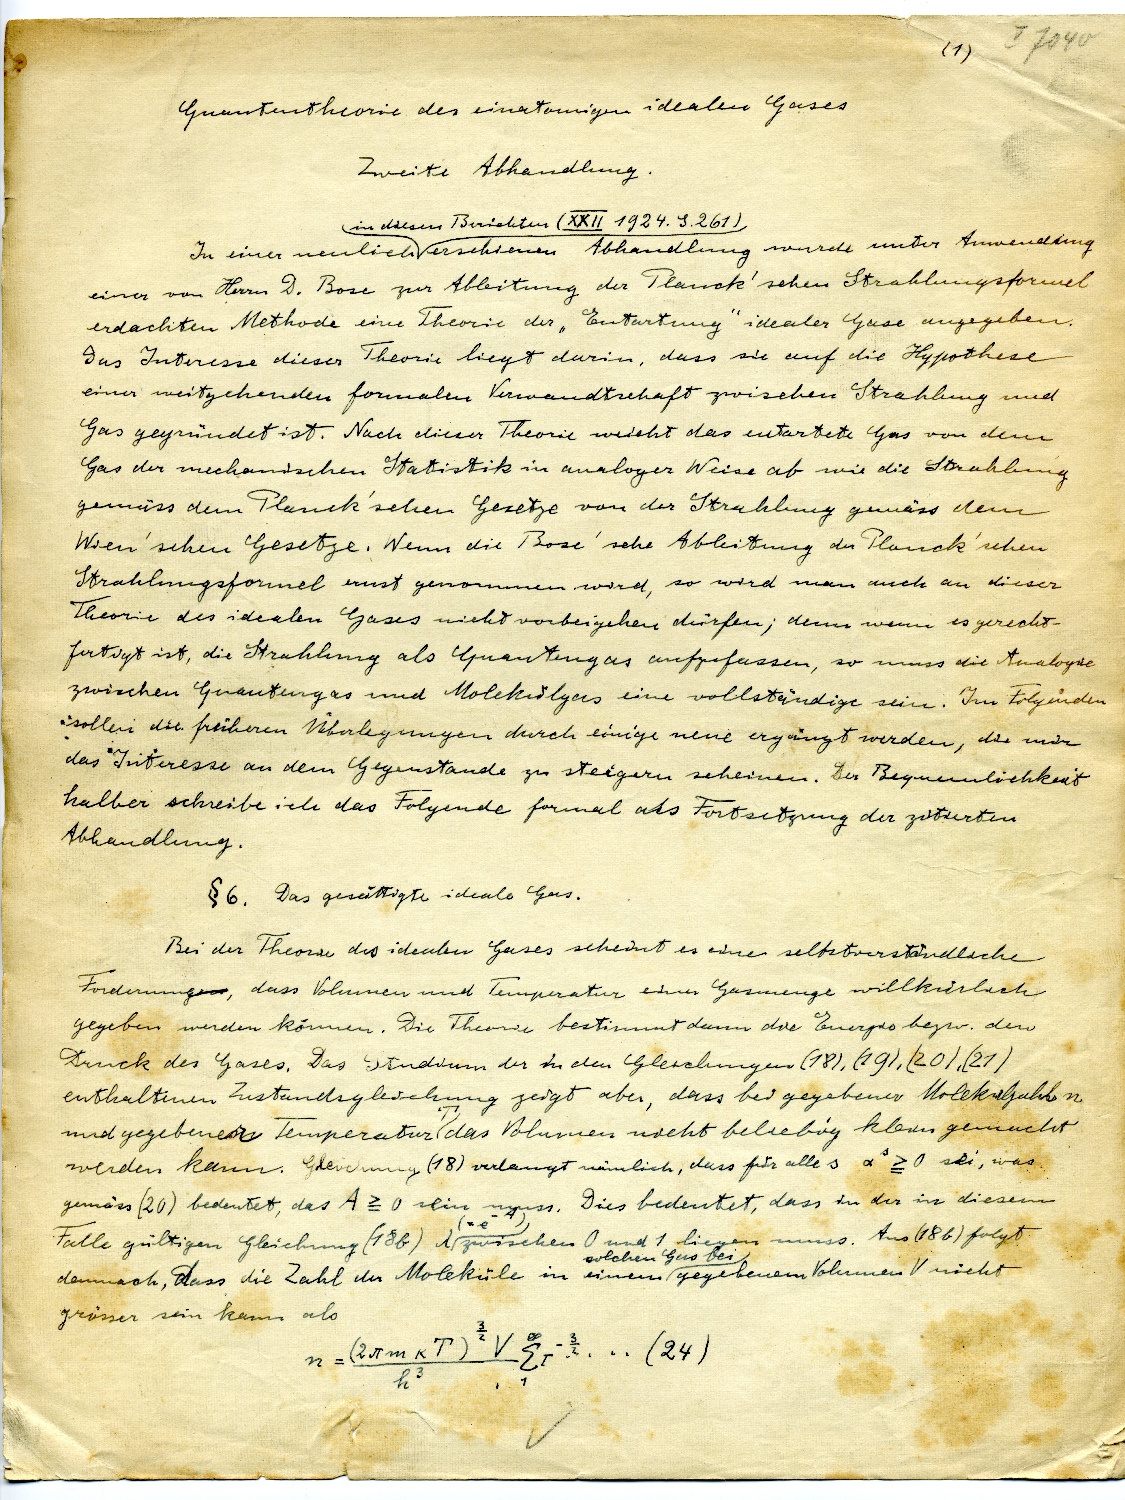 (1) I 7040
Quantentheorie des einatomigen idealen Gases
Zweite Abhandlung.
in diesen Berichten (XXII 1924. S. 261)
In einer neulich erschienen Abhandlung wurde unter Anwendung
einer von Herrn D. Bose zur Ableitung der Planck'schen Strahlungsformel
erdachten Methode eine Theorie der „Entartung" idealer Gase angegeben.
Das Interesse dieser Theorie liegt darin, dass sie auf die Hypothese
einer weitgehenden formalen Verwandtschaft zwischen Strahlung und
Gas gegründet ist. Nach dieser Theorie weicht das entartete Gas von dem
Gas der mechanischen Statistik in analoger Weise ab wie die Strahlung
gemäss dem Planck'schen Gesetze von der Strahlung gemäss dem
Wien'schen Gesetze. Wenn die Bose'sche Ableitung der Planck'schen
Strahlungsformel ernst genommen wird, so wird man auch an dieser
Theorie des idealen Gases nicht vorbeigehen dürfen; denn wenn es gerecht-
fertigt ist, die Strahlung als Quantengas aufzufassen, so muss die Analogie
zwischen Quantengas und Molekülgas eine vollständige sein. Im Folgenden
sollen die früheren Überlegungen durch einige neue ergänzt werden, die mir
das Interesse an dem Gegenstande zu steigern scheinen. Der Bequemlichkeit
halber schreibe ich das Folgende formal als Fortsetzung der zitierten
Abhandlung.
§6. Das gesättigte ideale Gas.
Bei der Theorie des idealen Gases scheint es eine selbstverständliche
Forderung, dass Volumen und Temperatur einer Gasmenge willkürlich
gegeben werden können. Die Theorie bestimmt dann die Energie bezw. den
Druck des Gases. Das Studium der in den Gleichungen (18), (19), (20), (21)
enthaltenen Zustandsgleichung zeigt aber, dass bei gegebener Molekülzahl n
und gegebener Temperatur T das Volumen nicht beliebig klein gemacht
werden kann. Gleichung (18) verlangt nämlich, dass für alle s αˢ ≧ 0 sei, was
gemäss (20) bedeutet, das A ≧ 0 sein muss. Dies bedeutet, dass in der in diesem
Falle gültigen Gleichung (18b) λ (= e⁻ᴬ) zwischen 0 und 1 liegen muss. Aus (18b) folgt
demnach, dass die Zahl der Moleküle in einem solchen Gas bei gegebenem Volumen V nicht
grösser sein kann als
n = (2πmκT)^{3/2} V / h³ ∑₁^∞ τ^{-3/2} . . . (24)